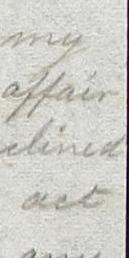 my
affair
clined
act
any